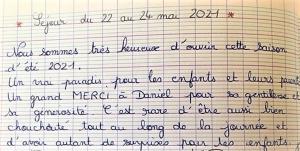 * Séjour du 22 au 24 mai 2021 *
Nous sommes très heureuse d'ouvrir cette saison
d'été 2021.
Un vrai paradis pour les enfants et leurs parents
Un grand MERCI à Daniel pour sa gentillesse et
sa générosité. C'est rare d'être aussi bien
chouchouté tout au long de la journée et
d'avoir autant de surprises pour les enfants